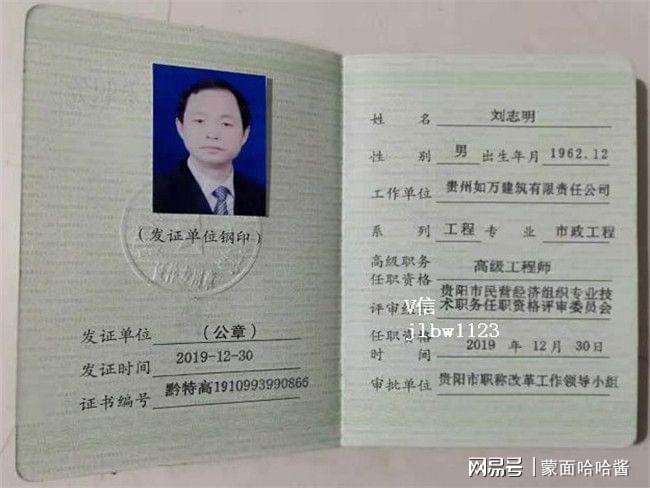 (发证单位钢印)
发证单位 (公章)
发证时间 2019-12-30
证书编号 黔特高1910993990866
姓 名 刘志明
性 别 男 出生年月 1962.12
工作单位 贵州如万建筑有限责任公司
系 列 工程 专 业 市政工程
高级职务
任职资格 高级工程师
评审组织 贵阳市民营经济组织专业技
术职务任职资格评审委员会
任职资格
时 间 2019 年 12 月 30日
审批单位 贵阳市职称改革工作领导小组
V信
jlbw1123
网易号 蒙面哈哈酱